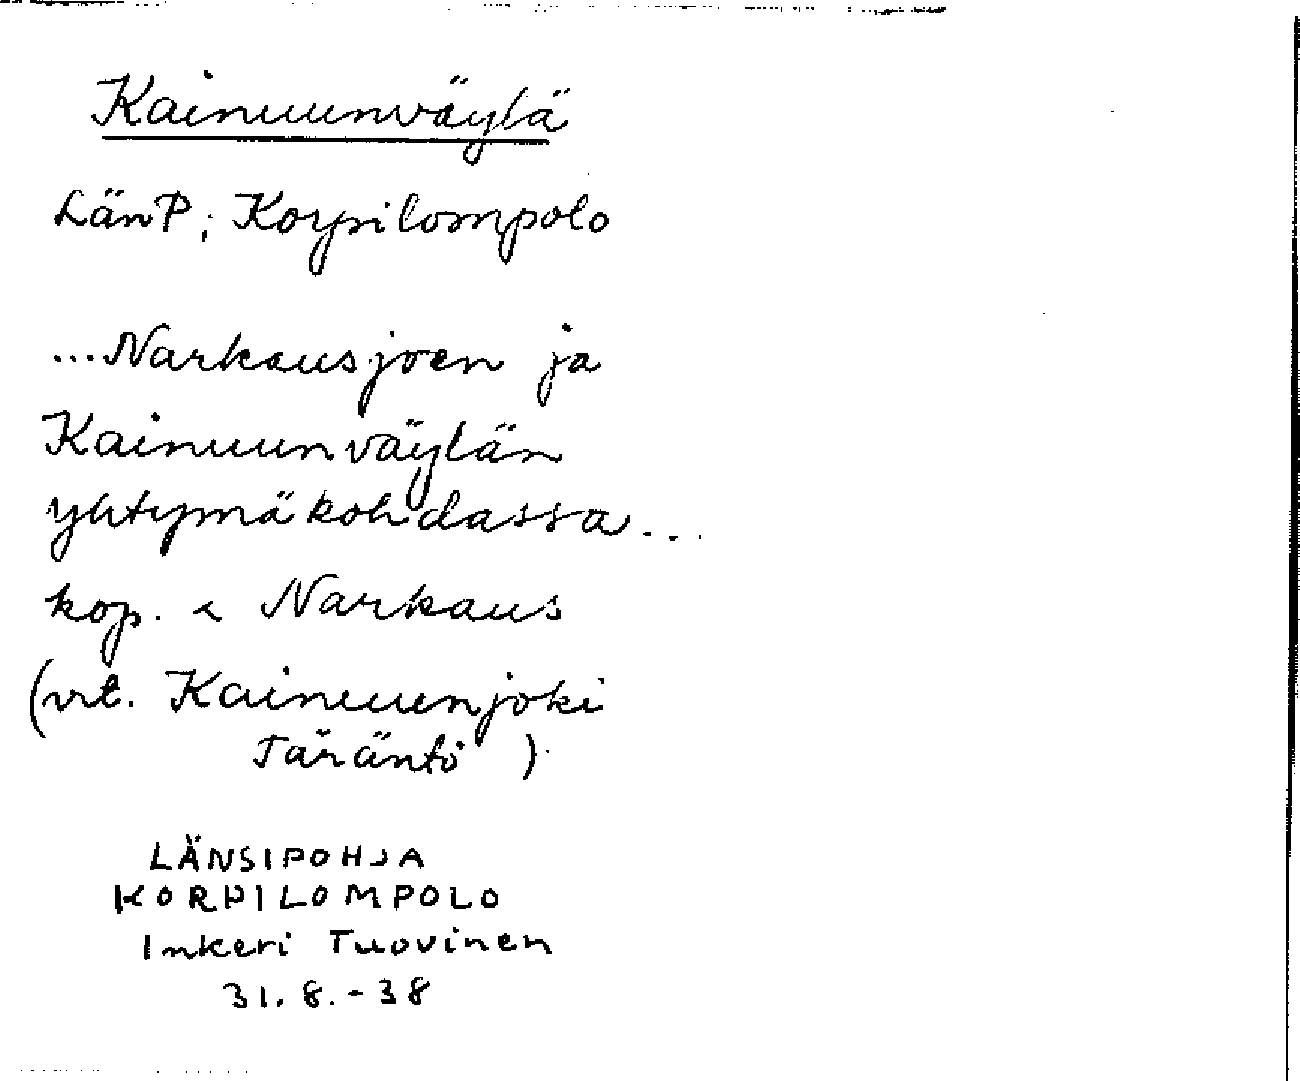 Kainuunväylä
LänP; Korpilompolo
...Narkausjoen ja
Kainuunväylän
yhtymäkohdassa...
kop. < Narkaus
(vrt. Kainuunjoki
Täräntö )
LÄNSIPOHJA
KORPILOMPOLO
Inkeri Tuovinen
31.8.-38